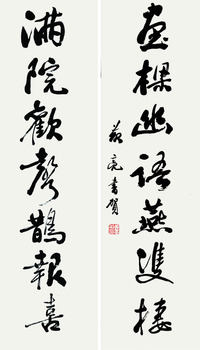 畫樑幽語燕雙棲
亮書賀
滿院歡聲鵲報喜